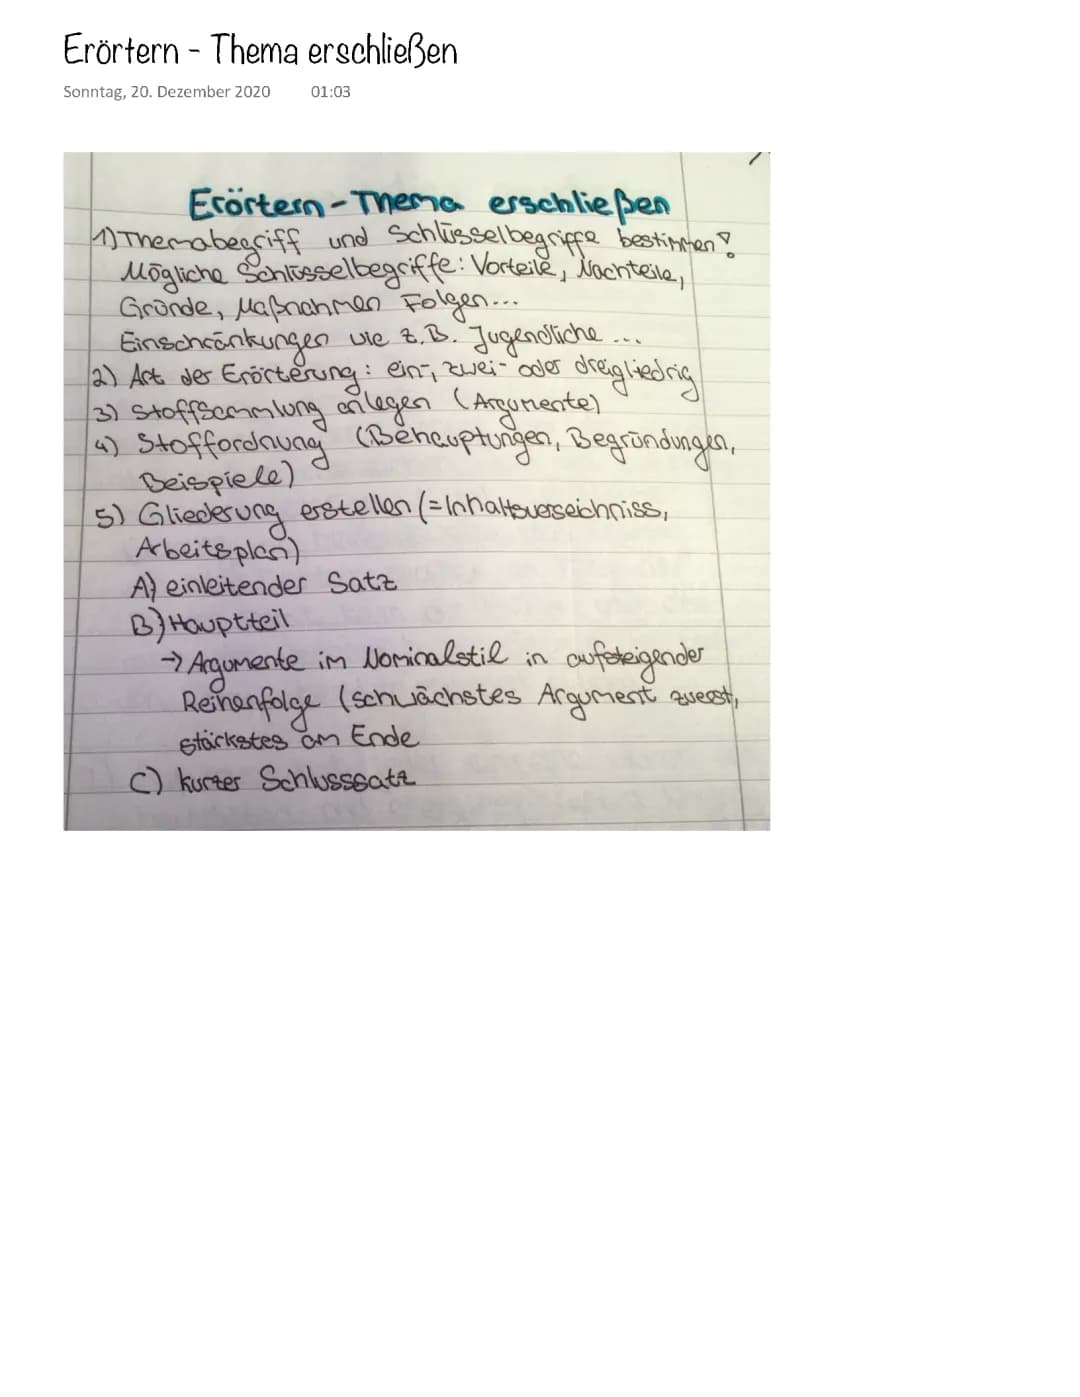 Erörtern - Thema erschließen
Sonntag, 20. Dezember 2020 01:03
Erörtern - Thema erschließen
1) Themabegriff und Schlüsselbegriffe bestimmen!
Mögliche Schlüsselbegriffe: Vorteile, Nachteile,
Gründe, Maßnahmen Folgen...
Einschränkungen wie z.B. Jugendliche ...
2) Art der Erörterung: ein-, zwei- oder dreigliedrig
3) Stoffsammlung anlegen (Argumente)
4) Stoffordnung (Behauptungen, Begründungen,
Beispiele)
5) Gliederung erstellen (=Inhaltsverseichniss,
Arbeitsplan)
A) einleitender Satz
B) Hauptteil
→ Argumente im Nominalstil in aufsteigender
Reihenfolge (schwächstes Argument zuerst,
stärkstes am Ende
C) kurzer Schlusssatz